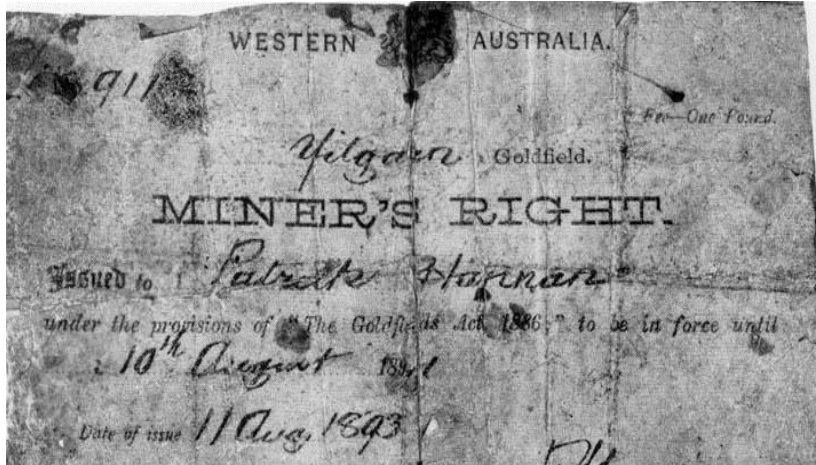 WESTERN AUSTRALIA.
911
Fee—One Pound.
Yilgarn Goldfield.
MINER'S RIGHT.
Issued to Patrick Hannan
under the provisions of "The Goldfields Act, 1886," to be in force until
10th August 1894
Date of issue 11 Aug. 1893